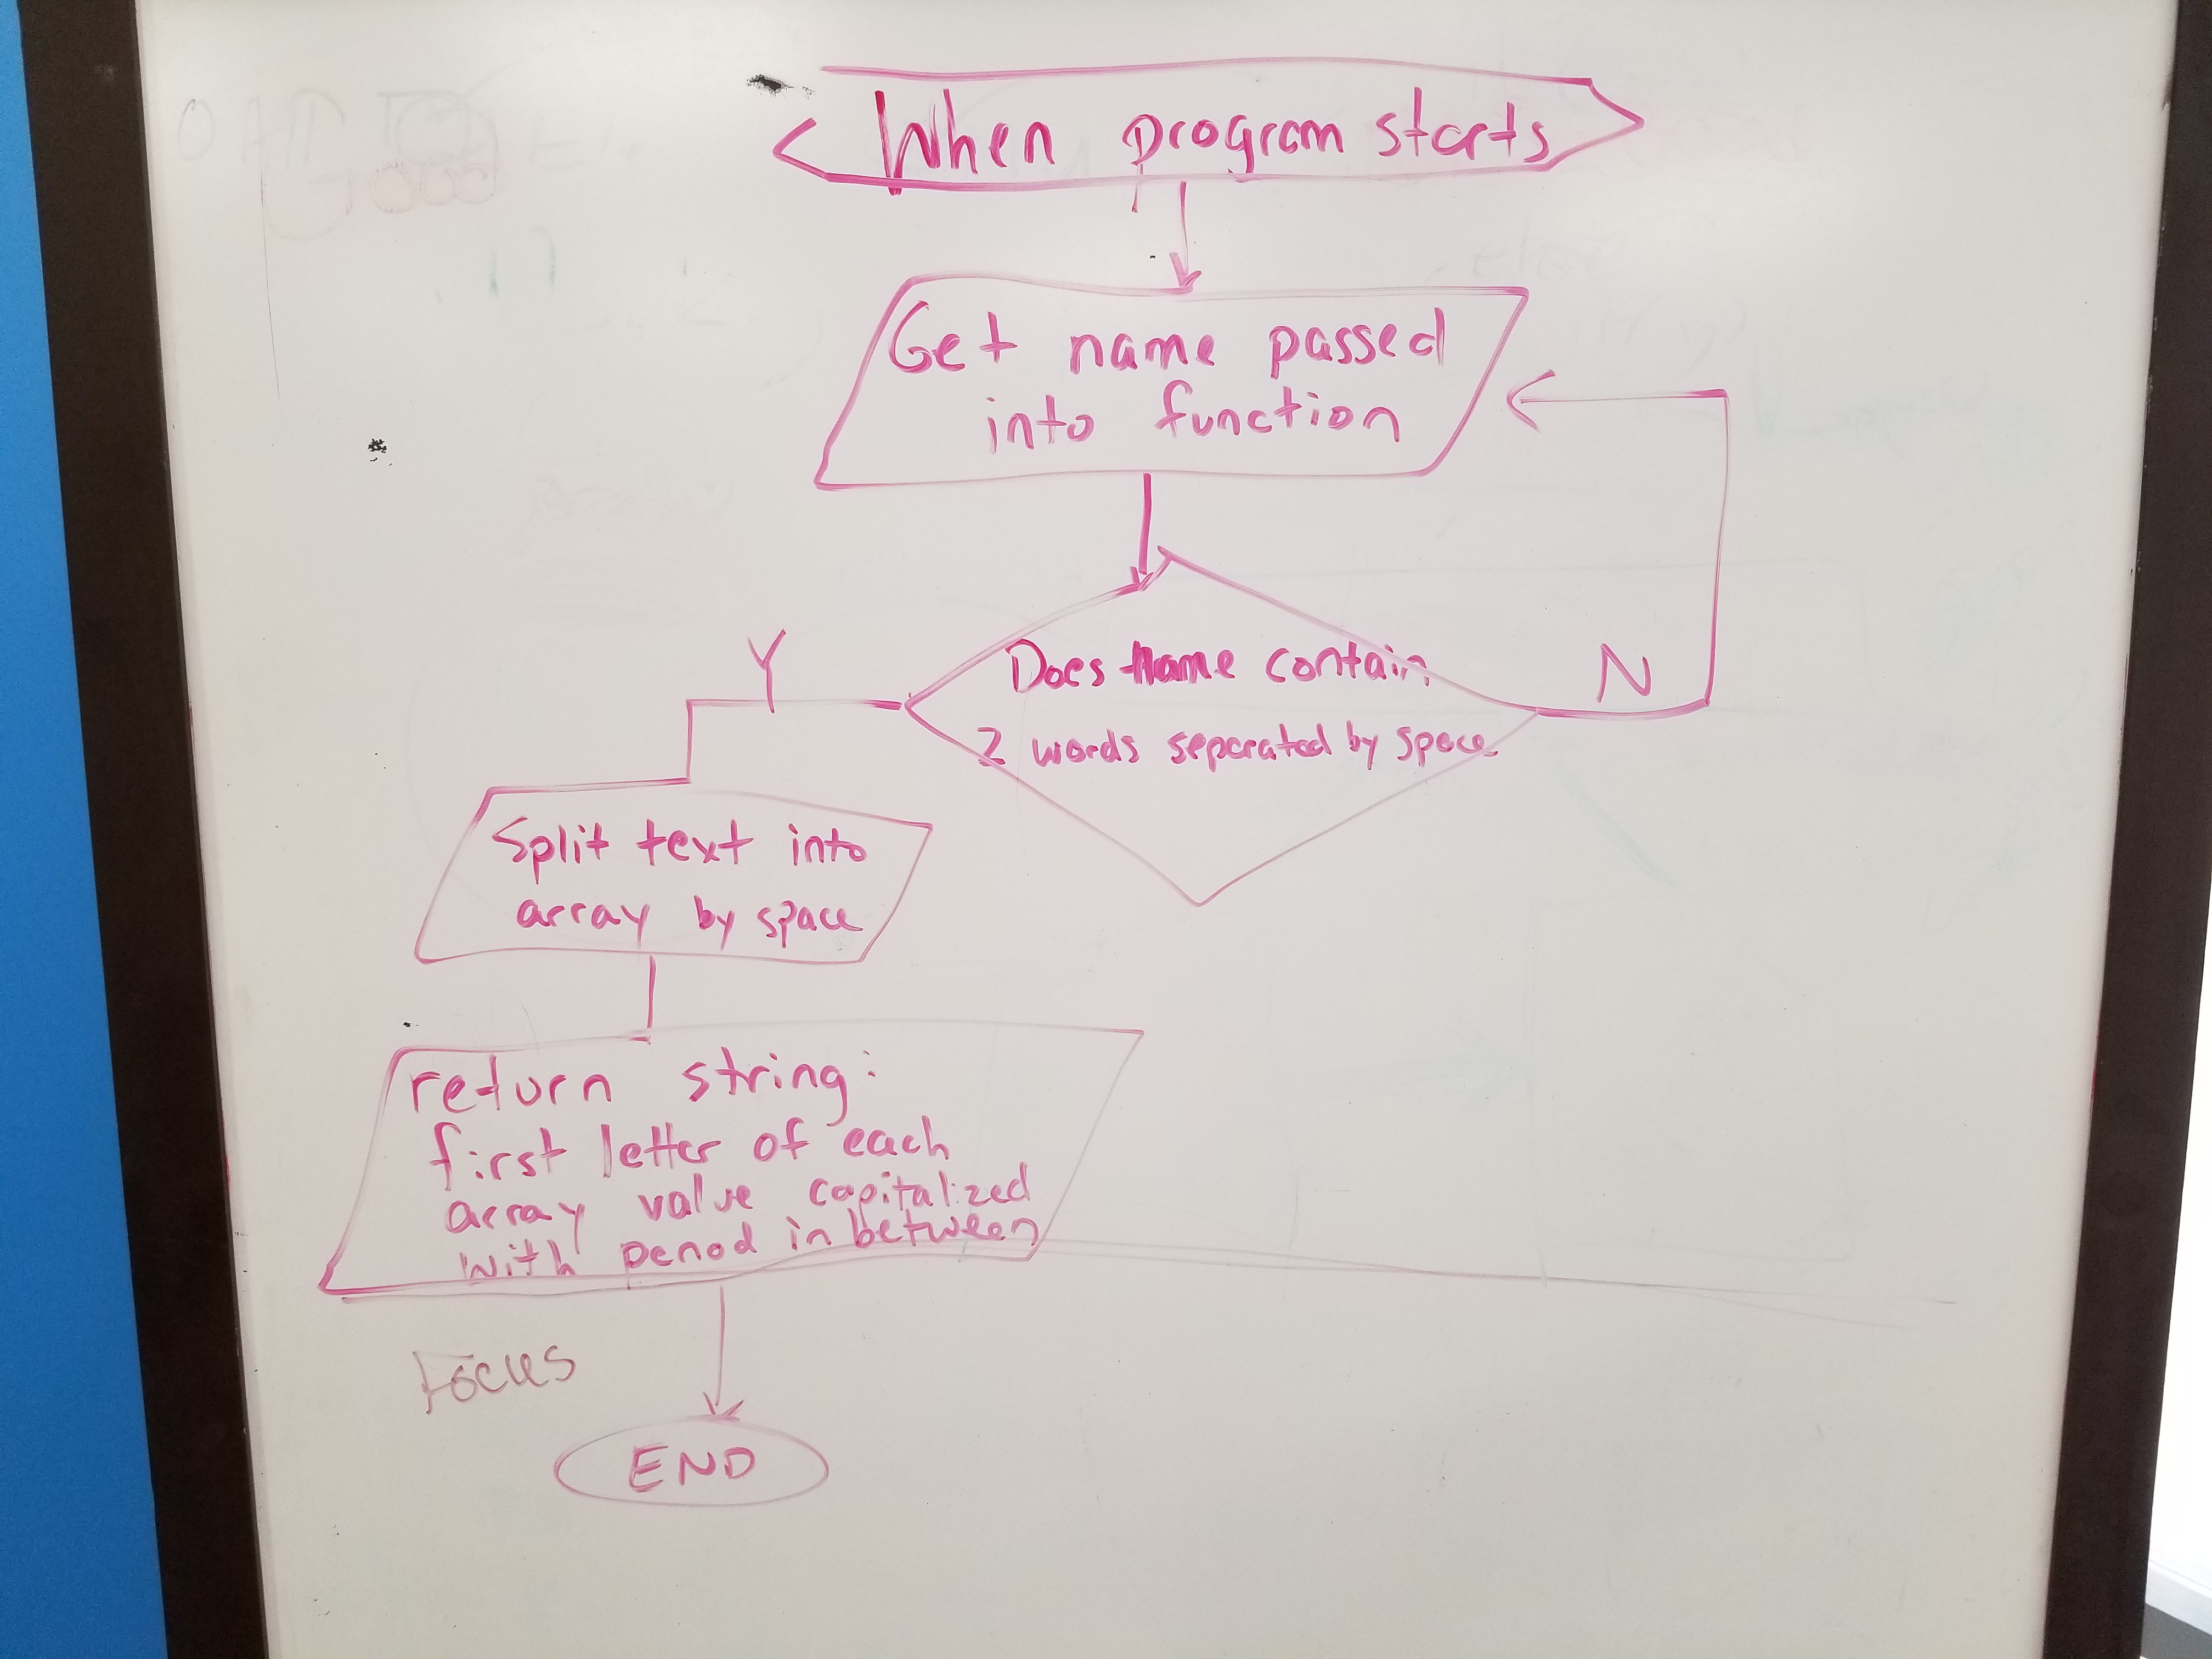 When program starts
Get name passed
into function
Does Name contain
2 words separated by space
Y
N
Split text into
array by space
return string:
first letter of each
array value capitalized
with period in between
Focus
END